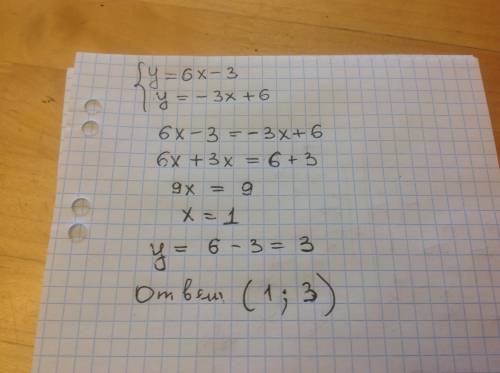 { y = 6x - 3
y = -3x + 6
6x - 3 = -3x + 6
6x + 3x = 6 + 3
9x = 9
x = 1
y = 6 - 3 = 3
Ответ (1; 3)